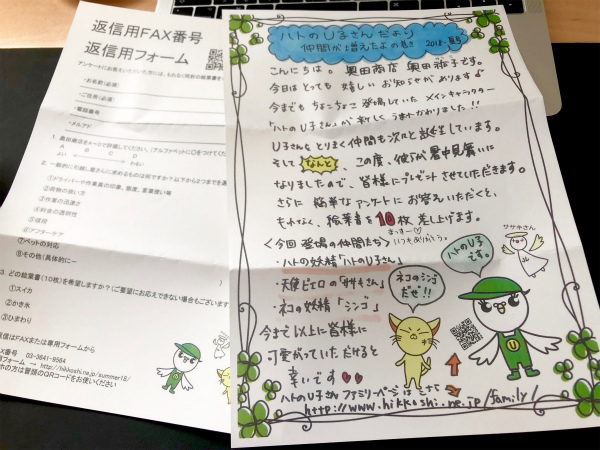 返信用FAX番号
返信用フォーム
・お名前(必須)
・ご住所(必須)
・電話番号
・メルアド
A B C D
よい わるい
①ドライバーや作業員の印象、態度、言葉使い等
②荷物の扱い方
③作業の迅速さ
④料金の透明性
⑤値段
⑥アフターケア
⑦ペットの対応
⑧その他(具体的に-
3. どの絵葉書(10枚)を希望しますか?(ご要望にお応えできない場合もございます
①スイカ
②かき氷
③ひまわり
信はFAXまたは専用フォームから
X番号 03-3641-9564
フォーム → http://hikkoshi.ne.jp/summer18/
ホの方は冒頭のQRコードをお使いください
ハトのU子さんだより
仲間が増えたよの巻き 2018・夏号
こんにちは。奥田商店 奥田祐子です。
今日はとっても嬉しいお知らせがあります
今までもちょこちょこ登場していたメインキャラクター
「ハトのU子さん」が新しくうまれかわりました!!
U子さんをとりまく仲間も次々と誕生しています。
そしてなんと、この度、彼らが暑中見舞いに
なりましたので、皆様にプレゼントさせていただきます。
さらに簡単なアンケートにお答えいただくと、
もれなく、絵葉書を10枚差し上げます。
いつもありがとう。
<今回登場の仲間たち>
・ハトの妖精「ハトのU子さん」
・天使ピエロの「ササキさん」
・ネコの妖精「シンゴ」
今まで以上に皆様に
可愛がっていただけると
幸いです
ササキさん
ハトのU子
です。
ネコのシンゴ
だぜ!!
U
ハトのU子さんファミリーページはこちら
http://www.hikkoshi.ne.jp/family/